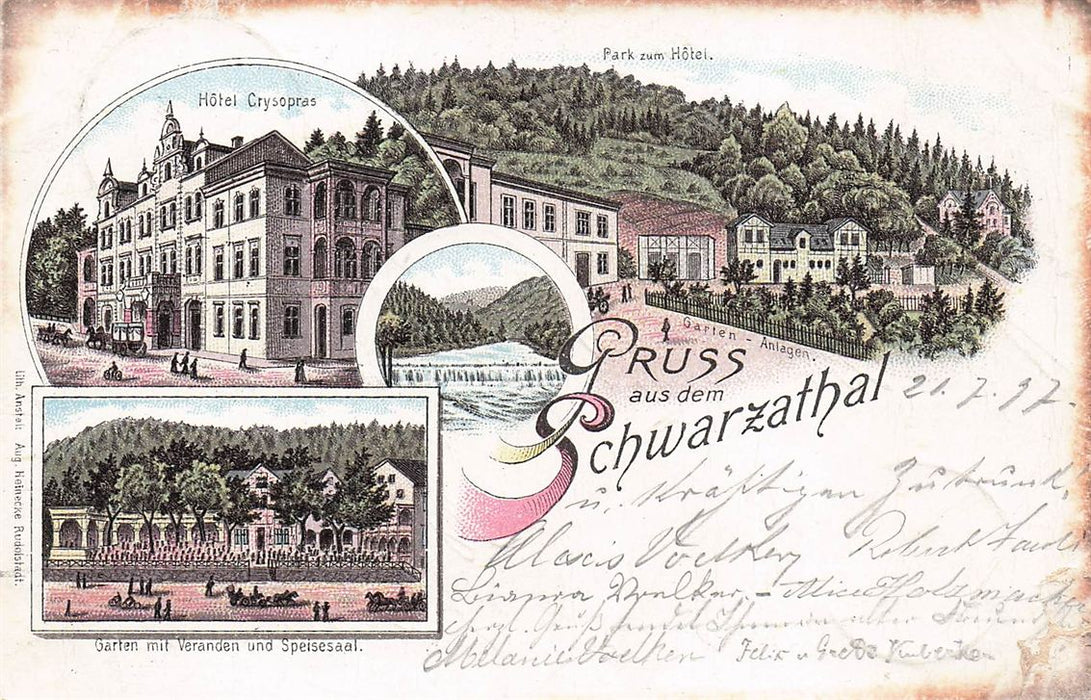 Park zum Hôtel.
Hôtel Crysopras
Garten - Anlagen.
GRUSS
aus dem
Schwarzathal
21. 7. 97.
u. kräftigen Zutrunk.
Alexis Voelker
Robert
Voelker. - Alice
Gruß sendet Ihnen
Melanie Voelker Felix u
Garten mit Veranden und Speisesaal.
Lith. Anstalt Aug. Reinecke Rudolstadt.